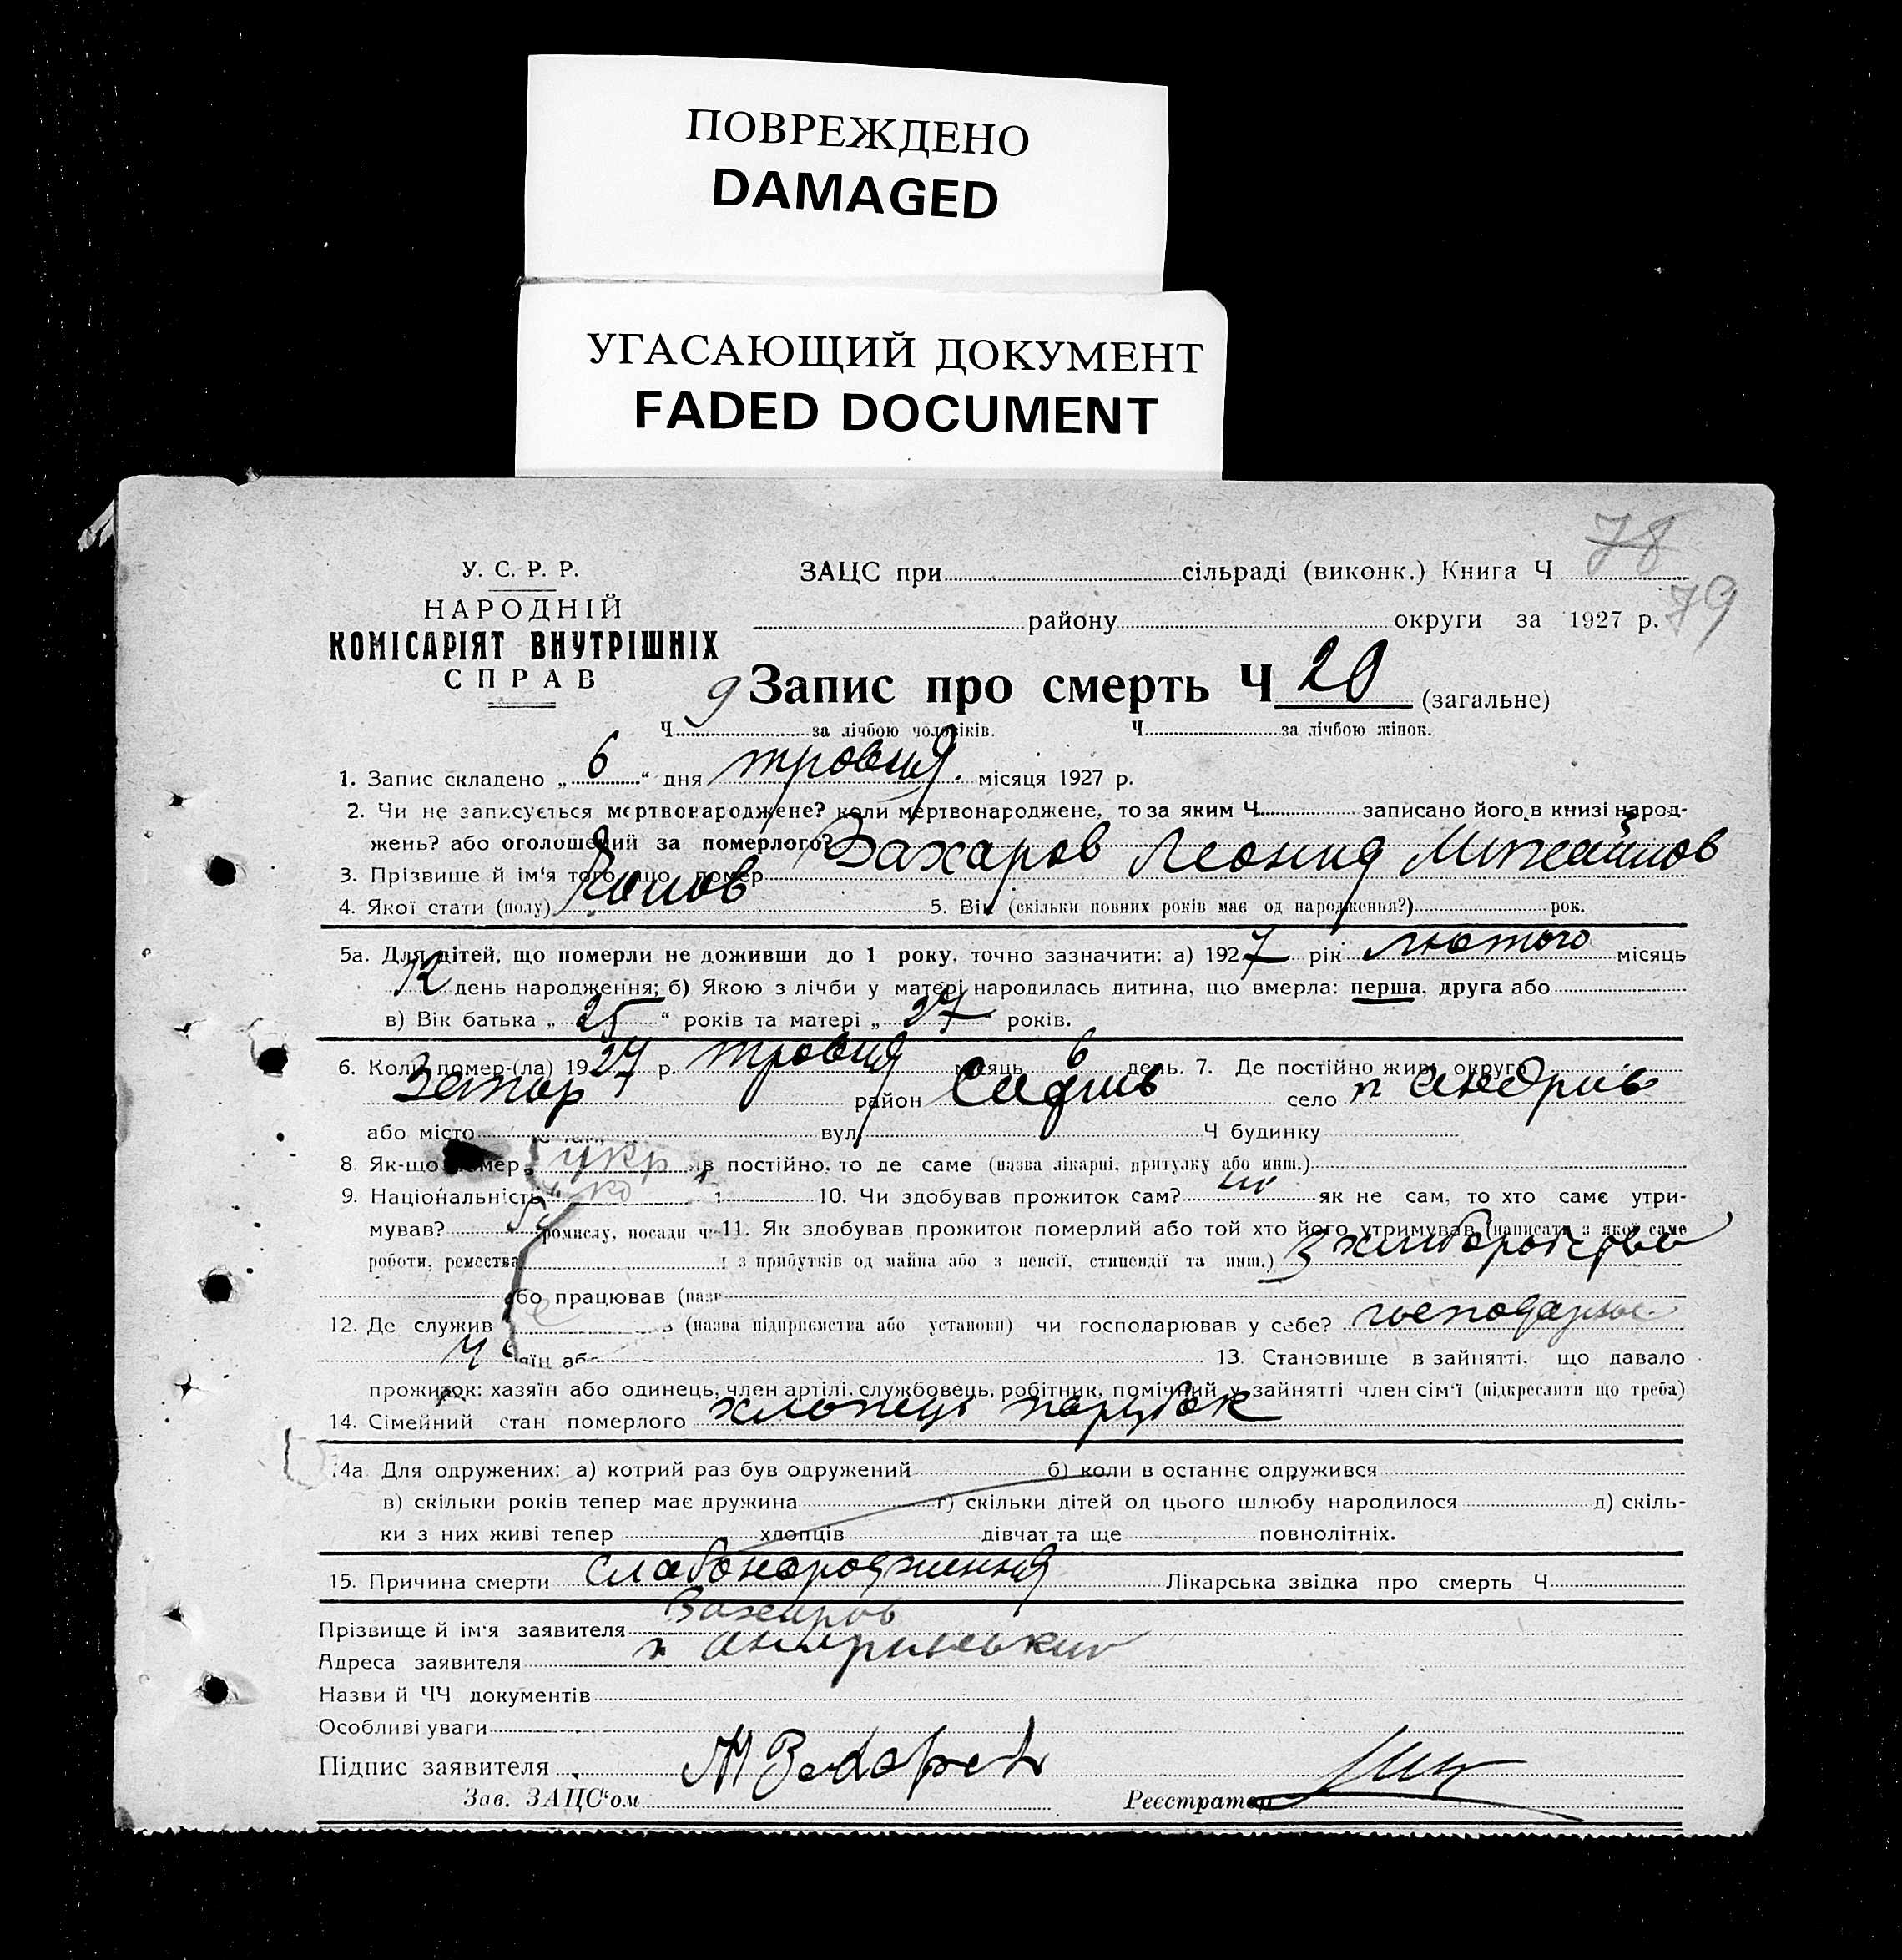 ПОВРЕЖДЕНО
DAMAGED
УГАСАЮЩИЙ ДОКУМЕНТ
FADED DOCUMENT
78
79
У. С. Р. Р.
НАРОДНІЙ
КОМІСАРІЯТ ВНУТРІШНІХ
СПРАВ
ЗАЦС при сільраді (виконк.) Книга Ч
району округи за 1927 р.
Запис про смерть Ч 20 (загальне)
Ч 9 за лічбою чоловіків. Ч за лічбою жінок.
1. Запис складено „ 6 “ дня травня місяця 1927 р.
2. Чи не записується мертвонароджене? коли мертвонароджене, то за яким Ч записано його в книзі народ-
жень? або оголошений за померлого?
3. Прізвище й ім'я того, що помер Захаров Леонид
4. Якої стати (полу) 5. Вік (скільки повних років має од народження?) рок.
5а. Для дітей, що померли не доживши до 1 року, точно зазначити: а) 1927 рік лютого місяць
12 день народження; б) Якою з лічби у матері народилась дитина, що вмерла: перша, друга або
в) Вік батька „ 25 “ років та матері „ 27 “ років.
6. Коли помер-(ла) 1927 р. травня місяць 6 день. 7. Де постійно жив: округа
район село
або місто вул. Ч будинку
8. Як-що помер в постійно, то де саме (назва лікарні, притулку або инш.)
9. Національність укр 10. Чи здобував прожиток сам? ні як не сам, то хто саме утри-
мував? промислу, посади ч 11. Як здобував прожиток померлий або той хто його утримував (написати з якої саме
роботи, ремества з прибутків од майна або з пенсії, стипендії та инш.) З хліборобства
або працював (наз
12. Де служив (назва підприємства або установи) чи господарював у себе?
13. Становище в зайнятті, що давало
прожиток: хазяїн або одинець, член артілі, службовець, робітник, помічний у зайнятті член сім'ї (підкреслити що треба)
14. Сімейний стан померлого хлопець парубок
14а Для одружених: а) котрий раз був одружений б) коли в останнє одружився
в) скільки років тепер має дружина г) скільки дітей од цього шлюбу народилося д) скіль-
ки з них живі тепер хлопців дівчат та ще повнолітніх.
15. Причина смерти слабонародження Лікарська звідка про смерть Ч
Прізвище й ім'я заявителя Захаров
Адреса заявителя
Назви й ЧЧ документів
Особливі уваги
Підпис заявителя М Захаров
Зав. ЗАЦС'ом Реєстратор